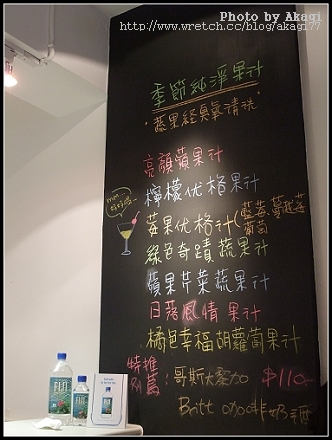 Photo by Akagi
http://www.wretch.cc/blog/akagi77
季節純淨果汁
蔬果經臭氧清洗
亮顏蘋果汁
檸檬优格果汁
莓果优格汁(藍莓 蔓越莓
葡萄
綠色奇蹟蔬果汁
蘋果芹菜蔬果汁
日落風情果汁
橘色幸福胡蘿蔔果汁
特推
哥斯大黎加 $110
FIJI